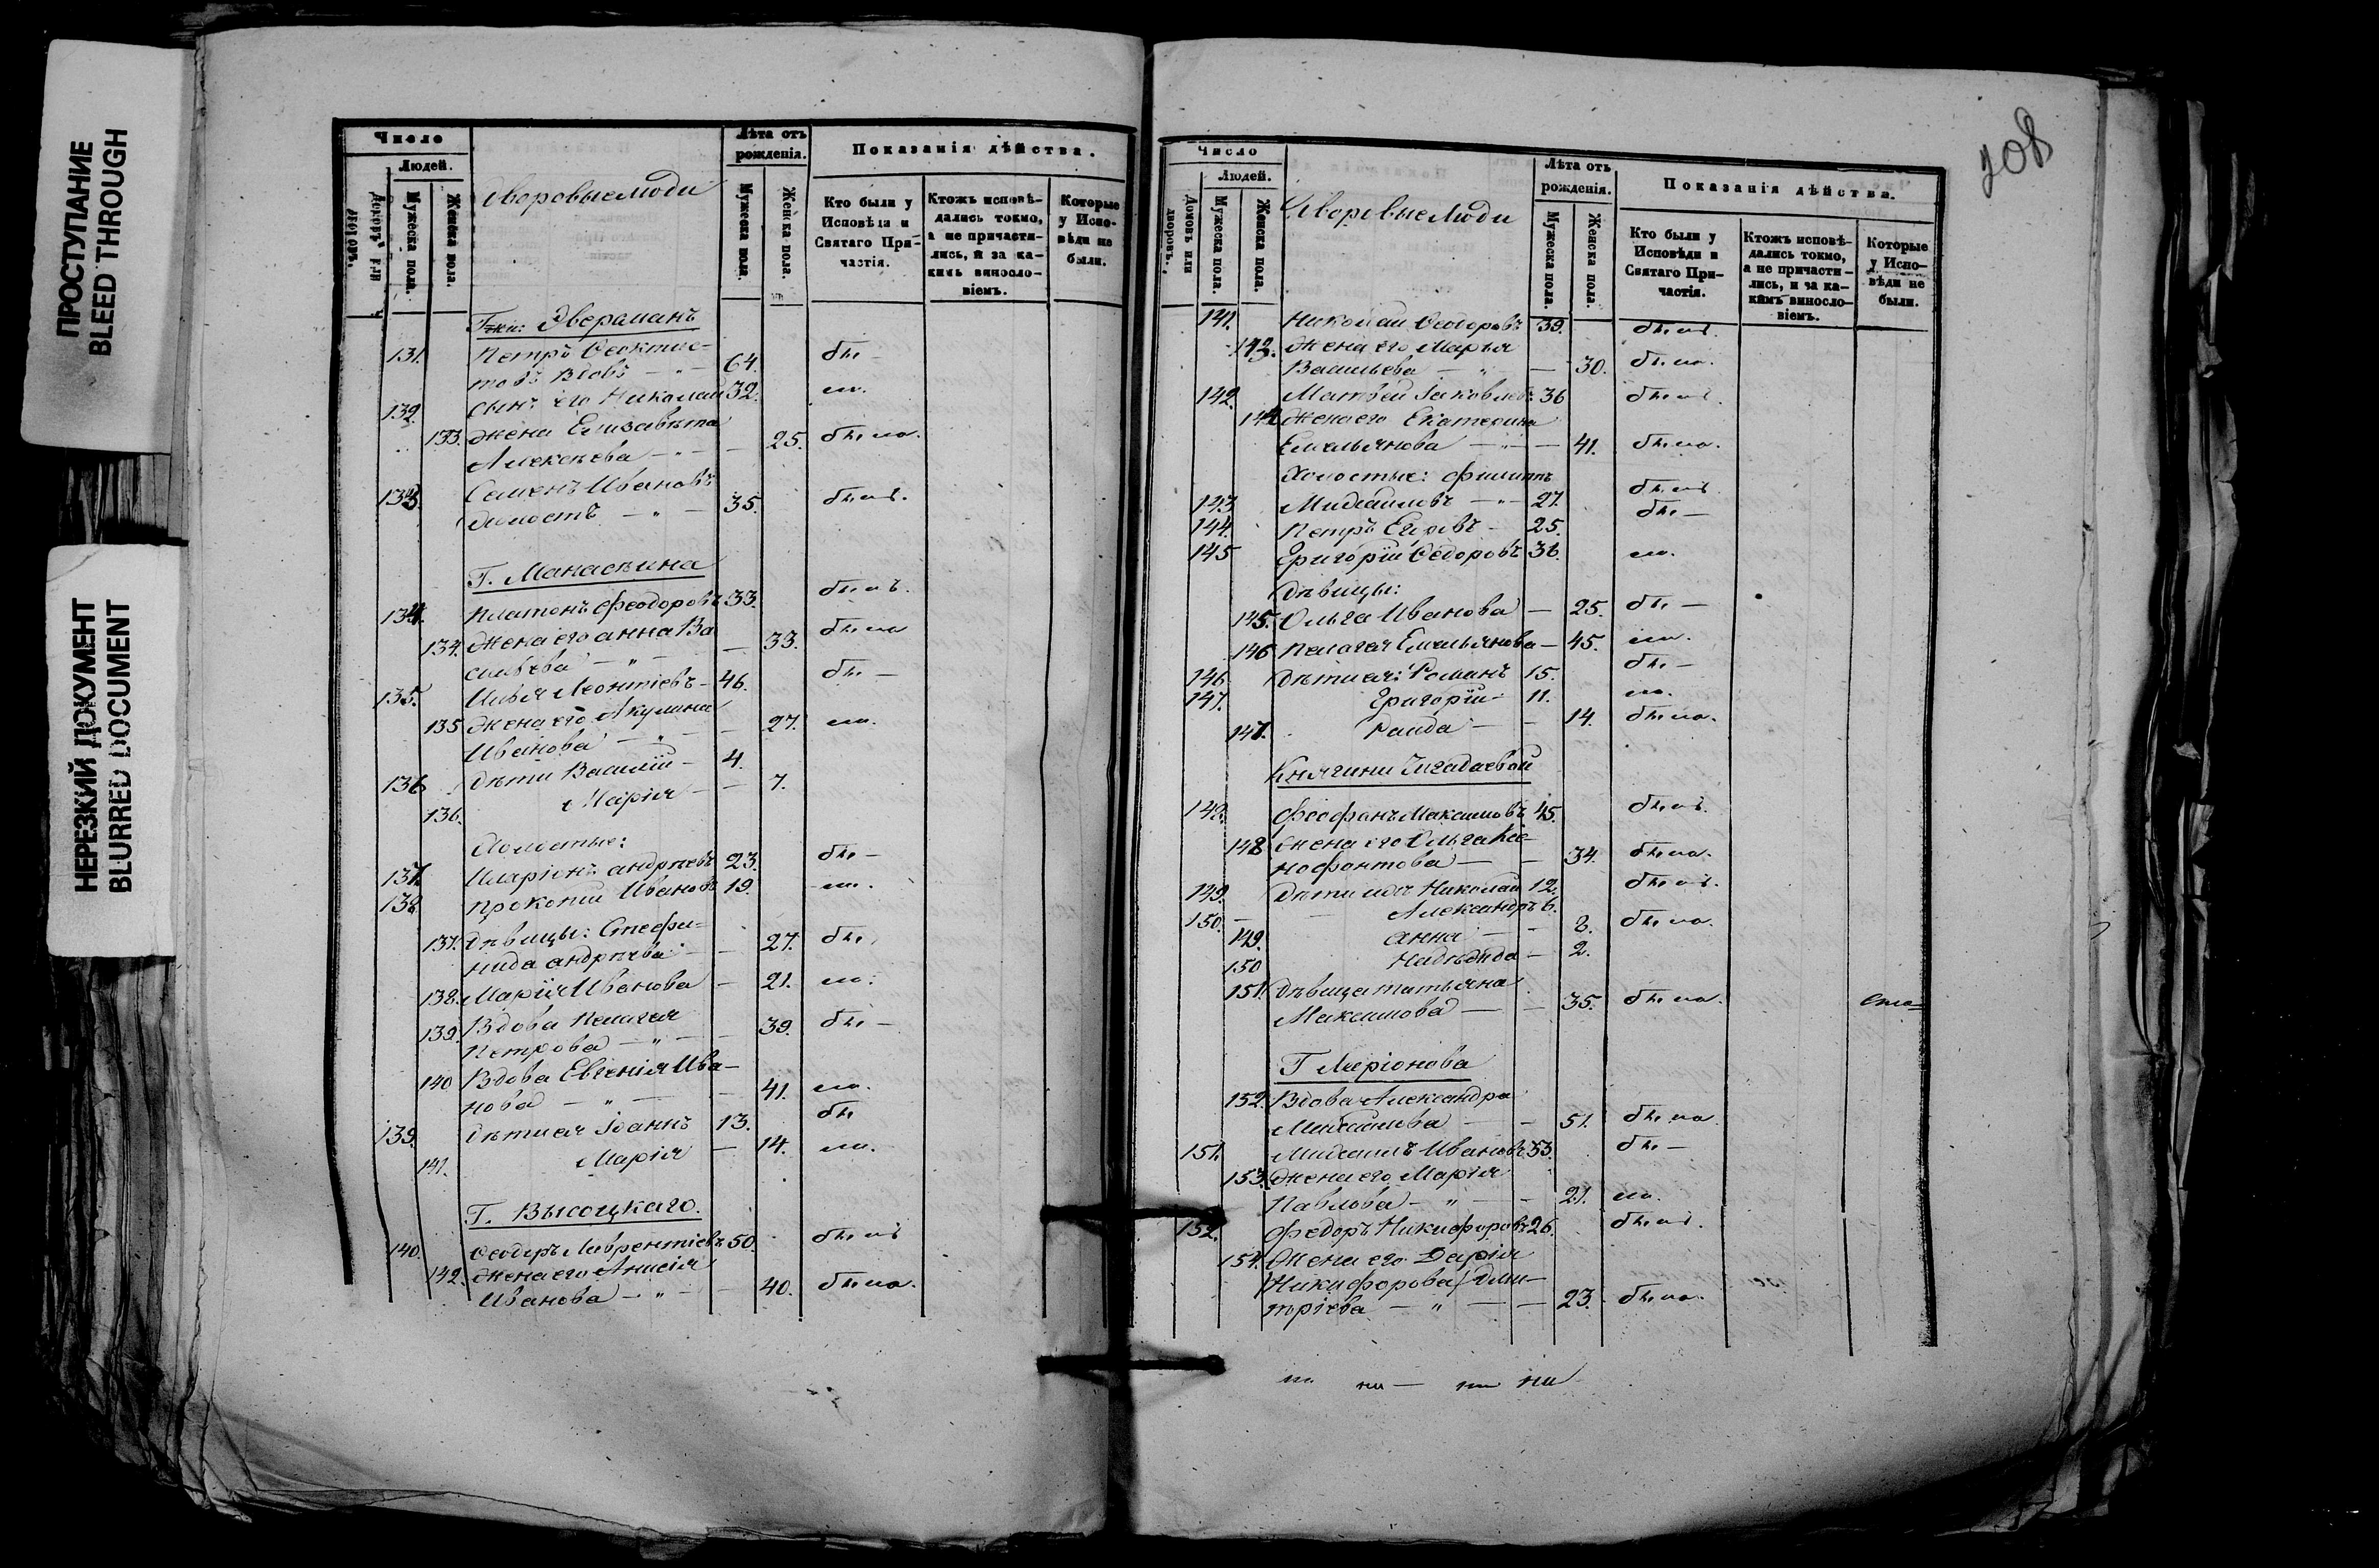 ПРОСТУПАНИЕ
BLEED THROUGH
НЕРЕЗКИЙ ДОКУМЕНТ
BLURRED DOCUMENT
Число
Людей.
Домовъ или дворовъ.
Мужеска пола.
Женска пола.
Дворовые люди
Лѣта отъ рожденія.
Мужеска пола.
Женска пола.
Показанія дѣйства.
Кто были у Исповѣди и Святаго При-частія.
Ктожъ исповѣ-дались токмо, а не причасти-лись, и за ка-кимъ виносло-віемъ.
Которые у Испо-вѣди не были.
Г-жи: Эверманъ
131. Петръ Феоктис-
товъ вдовъ — " — 64. бы —
132. сынъ его Николай 32. ли.
133. жена Елизавѣта
Алексѣева — " — 25. была.
133. Семенъ Ивановъ
холостъ — " — 35. былъ.
Г. Манасеина
134. Платонъ Феодоровъ 33. былъ.
134. жена его Анна Ва
сильева — " — 33. была
135. Илья Леонтіевъ — 46. бы —
135 жена его Акулина
Иванова — " — 27. ли.
136 дѣти Василій — 4.
136. Марія — 7.
Холостые:
137. Иларіонъ Андреевъ 23. бы —
138 Прокопій Ивановъ 19. ли.
137. Дѣвицы: Стефа-
нида Андреева — 27. бы
138. Марія Иванова — 21. ли.
139. Вдова Пелагея
Петрова — " — 39. бы —
140 Вдова Евгенія Ива-
нова — " — 41. ли.
139. дѣти ея Іоаннъ 13. бы
141. Марія — 14. ли.
Г. Высоцкаго.
140. Феодоръ Лаврентіевъ 50. былъ
142. Жена его Анисія
Иванова — " — 40. была.
208
Число
Людей.
Домовъ или дворовъ.
Мужеска пола.
Женска пола.
Дворовые люди
Лѣта отъ рожденія.
Мужеска пола.
Женска пола.
Показанія дѣйства.
Кто были у Исповѣди и Святаго При-частія.
Ктожъ исповѣ-дались токмо, а не причасти-лись, и за ка-кимъ виносло-віемъ.
Которые у Испо-вѣди не были.
141. Николай Феодоровъ 39. былъ.
143. Жена его Марья
Васильева — " — 30. была.
142. Матвей Іаковлевъ 36 былъ.
144 Жена его Екатерина
Емельянова — " — 41. была.
Холостые: Филиппъ
143 Михайловъ — " — 27. былъ
144. Петръ Егоровъ — 25. бы —
145 Григорій Феодоровъ 36. ли.
Дѣвицы:
145. Ольга Иванова — 25. бы —
146 Пелагея Емельянова — 45. ли.
146 дѣти ея: Романъ 15. бы —
147. Григорій — 11. ли.
147. Раида — 14. была.
Княгини Чегодаевой
148. Феофанъ Максимовъ 45. былъ.
148 Жена его Ольга Ксе-
нофонтова — 34. была.
149. Дѣти ихъ Николай 12. былъ.
150. Александръ 6.
149. Анна — 8. была.
150 Надежда — 2.
151. Дѣвица Татьяна
Максимова — 35. была.
Г Ларіонова
152. Вдова Александра
Михайлова — 51. была
151. Михаилъ Ивановъ 53. бы —
153. Жена его Марія
Павлова — " — 21. ли.
152. Федоръ Никифоровъ 26. былъ.
154. Жена его Дарія
(Никифорова) Дми-
тріева — " — 23. была.